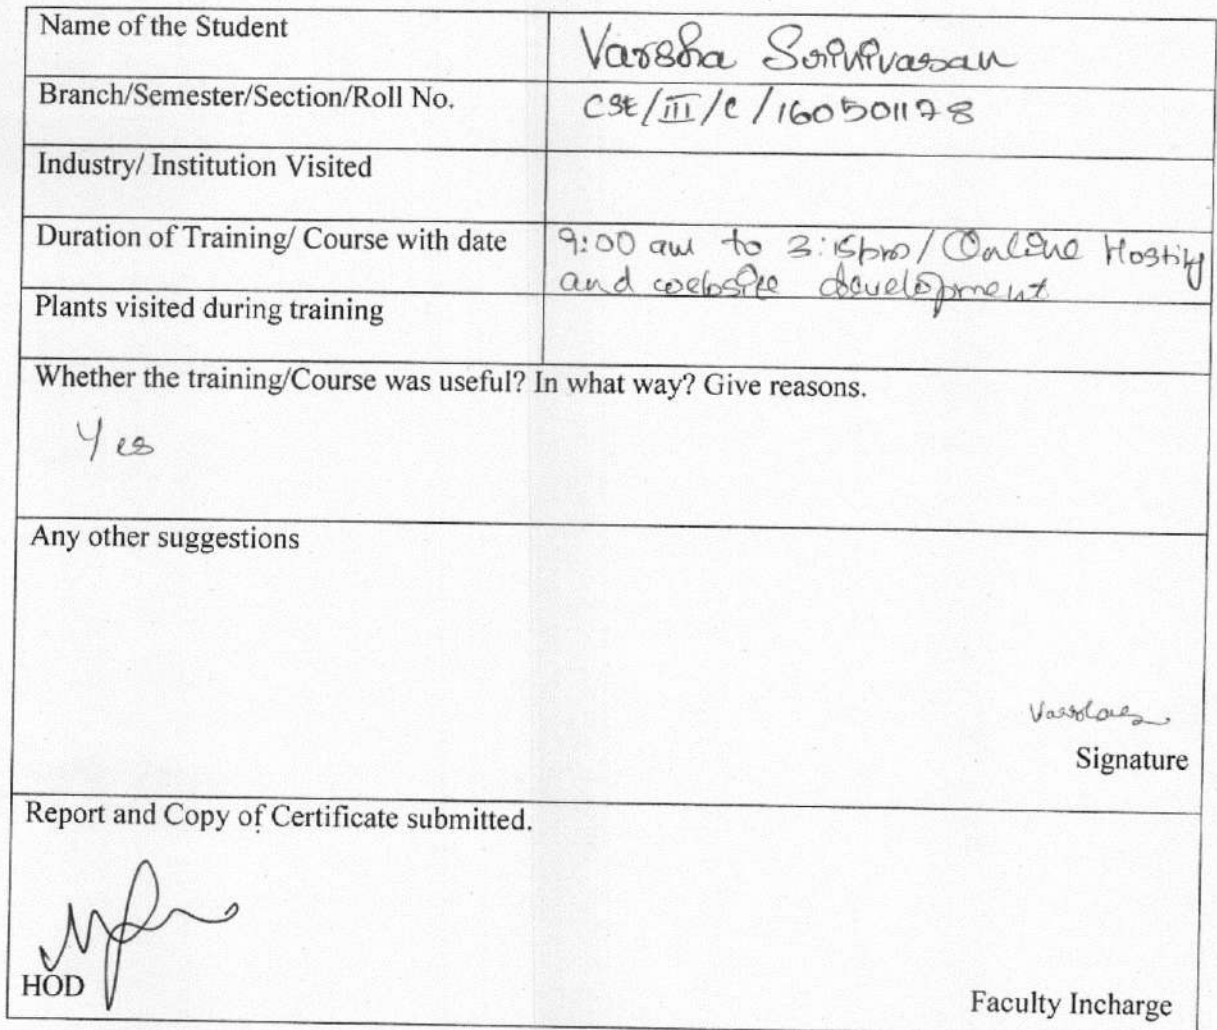 Name of the Student
Varsha Srinivasan
Branch/Semester/Section/Roll No.
CSE/III/C/160501178
Industry/ Institution Visited
Duration of Training/ Course with date
9:00 am to 3:15pm/Online Hosting
and website development
Plants visited during training
Whether the training/Course was useful? In what way? Give reasons.
Yes
Any other suggestions
Signature
Report and Copy of Certificate submitted.
HOD
Faculty Incharge